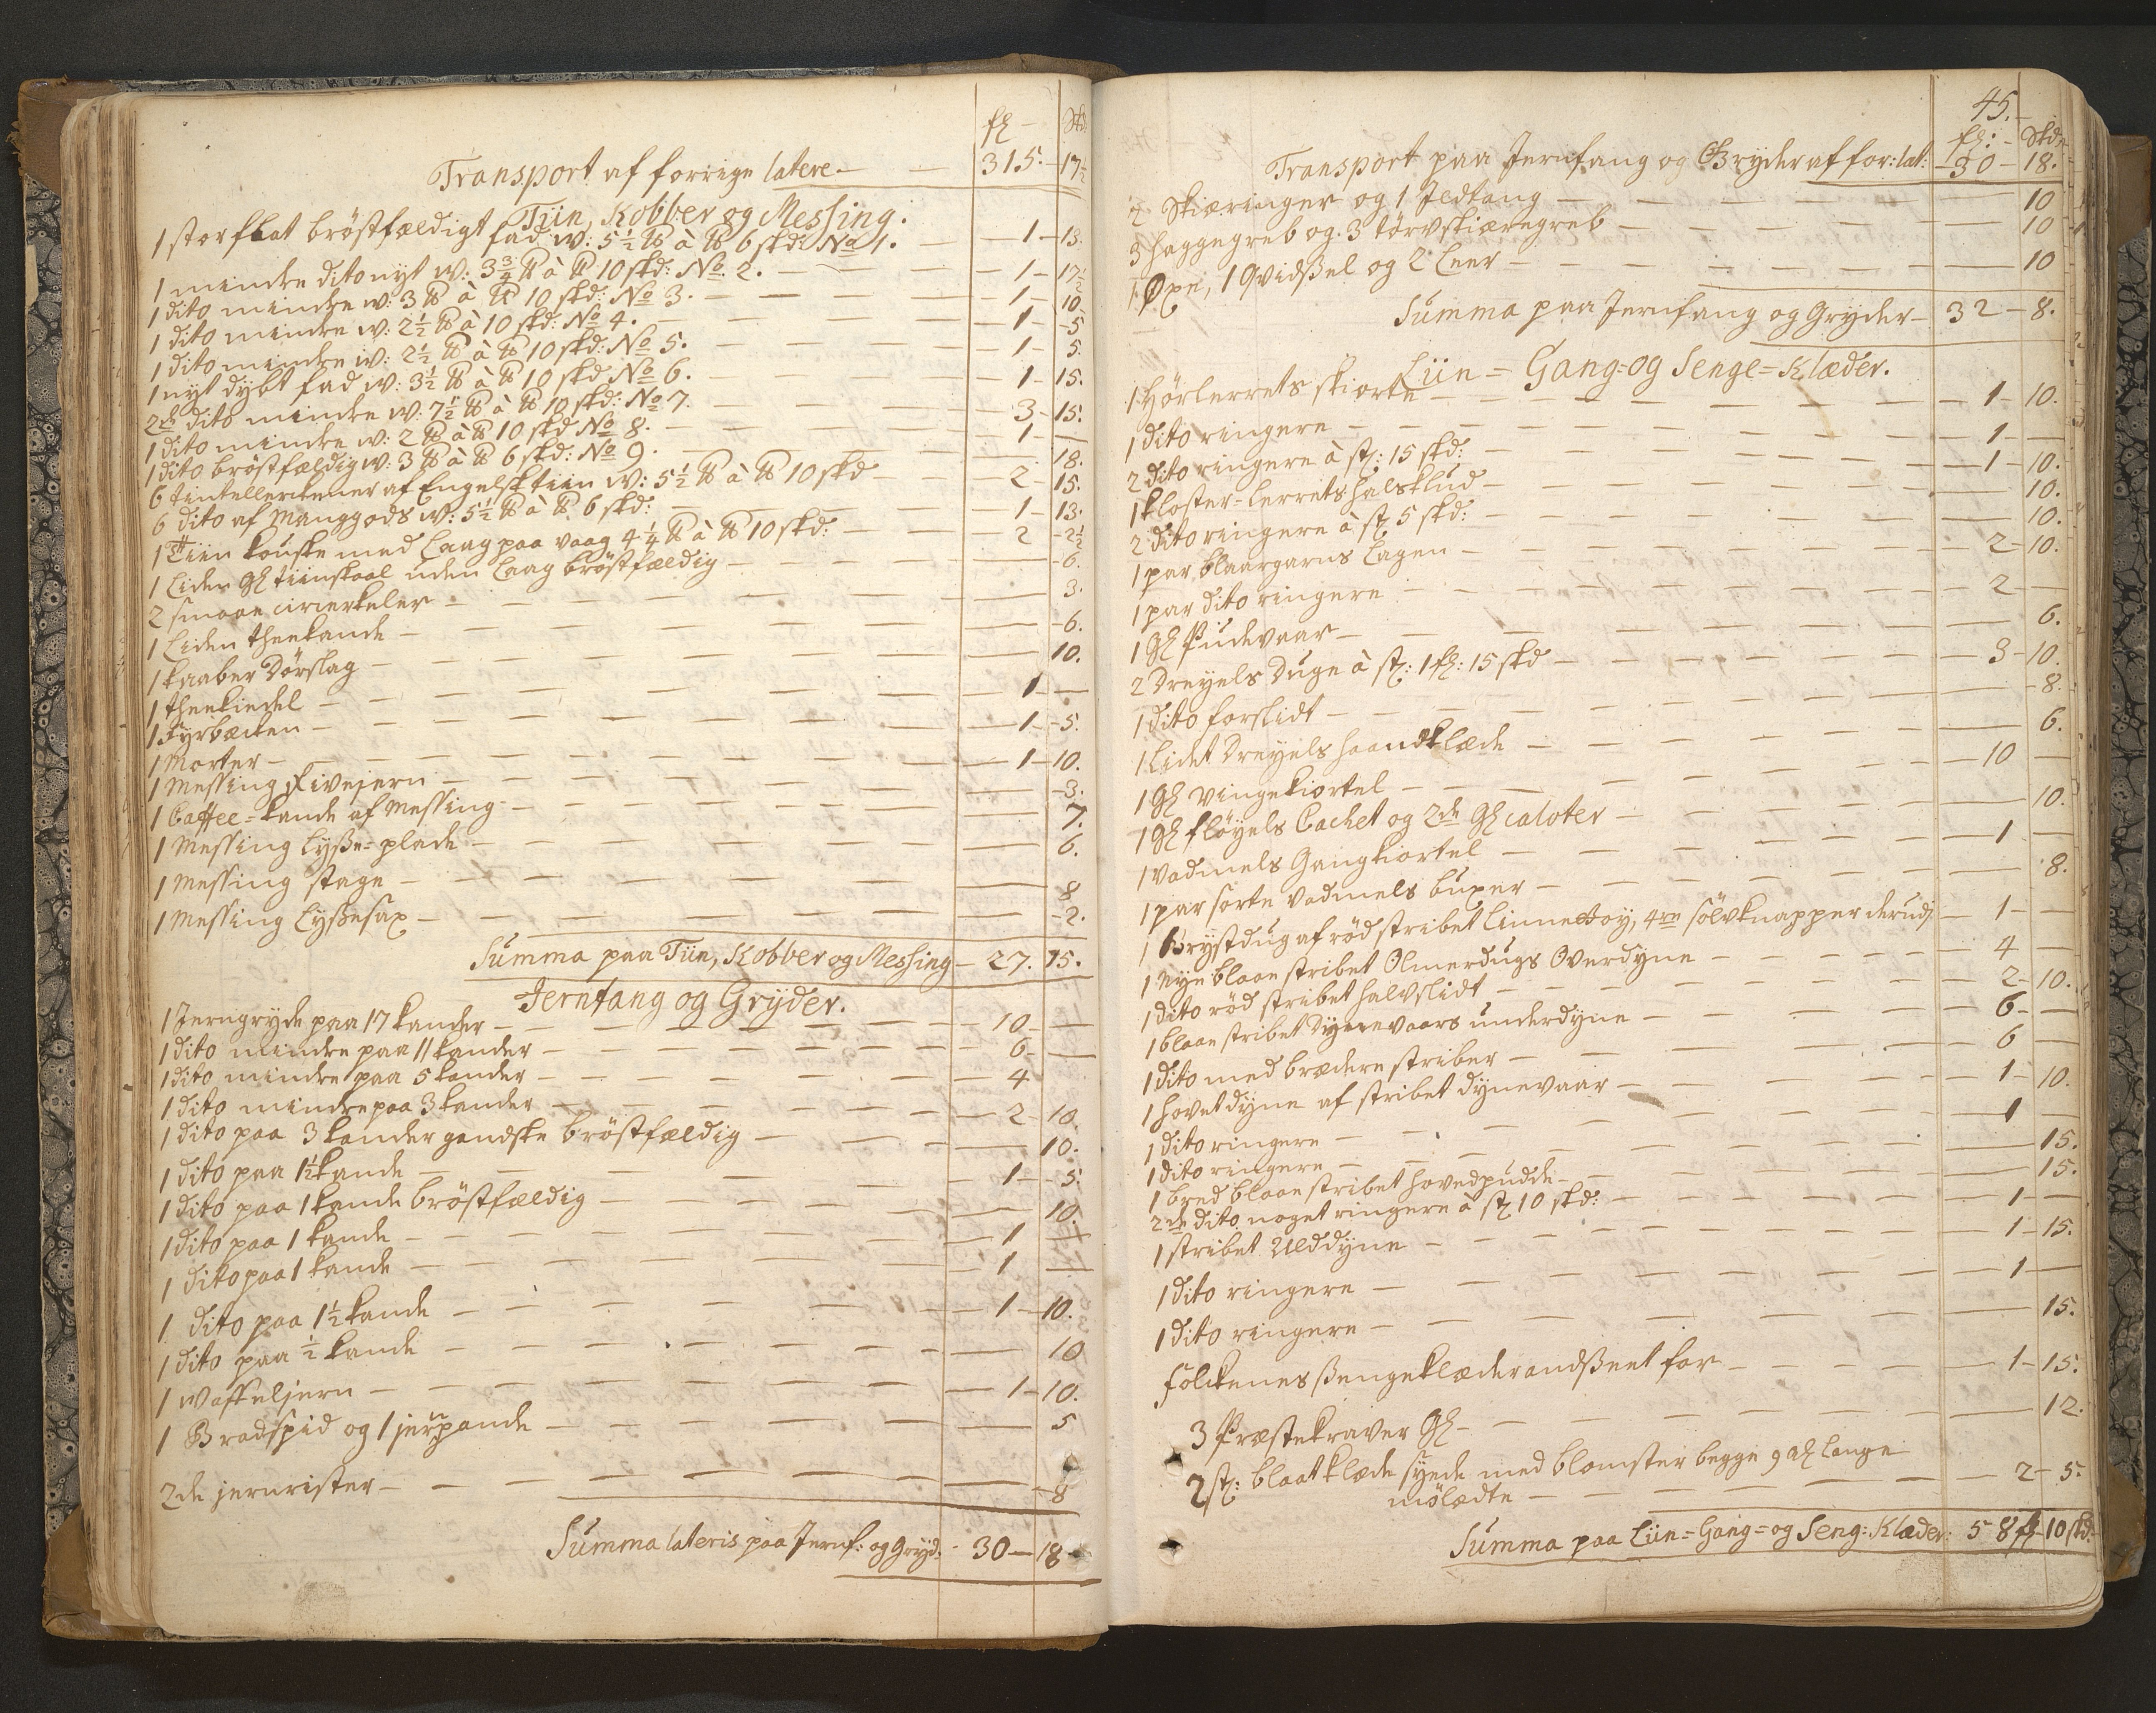 fl — Skd:
Transport af forrige latere. — — 315. 17½
Tiin, Kobber og Messing.
1 stor flat bröstfældigt fad w: 5½ ℔ à ℔ 6 skd: No 1. — 1 — 13.
1 mindre dito nyt w: 3¾ ℔ à ℔ 10 skd: No 2. — 1 — 17½
1 dito mindre w: 3 ℔ à ℔ 10 skd: No 3. — 1 — 10
1 dito mindre w: 2½ ℔ à 10 skd: No 4. — 1 — 5
1 dito mindre w: 2½ ℔ à ℔ 10 skd: No 5. — 1 — 5.
1 nyt dybt fad w: 3½ ℔ à ℔ 10 skd No 6. — 1 — 15.
2de dito mindre w: 7½ ℔ à ℔ 10 skd: No 7. — 3 — 15.
1 dito mindre w: 2 ℔ à ℔ 10 skd No 8. — 1 —
1 dito bröstfældig w: 3 ℔ à ℔ 6 skd: No 9. — 18.
6 tintellerkener af Engelsk tiin w: 5½ ℔ à ℔ 10 skd — 2 — 15.
6 dito af Manggods w: 5½ ℔ à ℔ 6 skd: — 1 — 13.
1 Tiin kouske med Laag paa vaag 4¼ ℔ à ℔ 10 skd: — 2 — 2½
1 Liden Gl tiinskaal uden Laag bröstfældig — 6.
2 smaae — 3.
1 Liden theekande — 6.
1 kaaber Dörslag — 10.
1 theekiedel — 1 —
1 Fyrbæcken — 1 — 5.
1 Morter — 1 — 10.
1 Messing Rivejern — 3.
1 Caffee=kande af Messing — 7.
1 Messing Lysse=plade — 6.
1 Messing stage — 8
1 Messing Lyssesax — 2.
Summa paa Tiin, Kobber og Messing — 27. 15.
Jernfang og Gryder.
1 Jerngryde paa 17 kander — 10 —
1 dito mindre paa 11 kander — 6 —
1 dito mindre paa 5 kander — 4
1 dito mindre paa 3 kander — 2 — 10.
1 dito paa 3 kander gandske bröstfældig — 10.
1 dito paa 1½ kande — 1 — 5.
1 dito paa 1 kande bröstfældig — 10.
1 dito paa 1 kande — 1 —
1 dito paa 1 kande — 1 —
1 dito paa 1½ kande — 1 — 10.
1 dito paa ½ kande — 10
1 waffeljern — 1 — 10.
1 Bradspid og 1 jernpande — 5
2de jernrister — 8
Summa lateris paa Jernf: og Gryd: 30 — 18
45.
fl: — Skd:
Transport paa Jernfang og Gryder af for: lat: — 30 — 18.
2 Skiæringer og 1 Ildtang — 10
3 haggegreb og 3 törvskiæregreb — 10
1 Öxe, 1 Qvidssel og 2 Leer — 10
Summa paa Jernfang og Gryder — 32 — 8.
Liin = Gang= og Senge=Klæder.
1 Hörlerrets skiorte — 1 — 10.
1 dito ringere — 1 —
2 dito ringere à st: 15 skd: — 1 — 10.
1 kloster=lerrets halsklud — 10.
2 dito ringere à st 5 skd: — 10.
1 par blaargarns Lagen — 2 — 10.
1 par dito ringere — 2 —
1 Gl Pudevaar — 6.
2 Dreyels Duge à st: 1 fl: 15 skd — 3 — 10.
1 dito forslidt — 8.
1 Lidet Dreyels haandklæde — 6.
1 Gl vingekiortel — 10 —
1 Gl fløyels Cachet og 2de Gl caloter — 10.
1 vadmels Gangkiortel — 1 —
1 par sorte vadmels buxer — 8.
1 Brystdug af rød stribet Linnettöy, 4re sölvknapper derudj — 1 —
1 Nye blaae stribet Olmerdugs Overdyne — 4 —
1 dito rød stribet halvslidt — 2 — 10.
1 blaae stribet Dynevaars underdyne — 6 —
1 dito med brædere striber — 6 —
1 hovetdyne af stribet dynevaar — 1 — 10.
1 dito ringere — 1 —
1 dito ringere — 15.
1 bred blaae stribet hovedpudde — 15.
2de dito noget ringere à st 10 skd: — 1 —
1 stribet Ulddyne — 1 — 15.
1 dito ringere — 1 —
1 dito ringere — 15.
Folckenes ssengeklæder andsseet for — 1 — 15.
3 Præstekraver Gl — 12.
2 st: blaat klæde syede med blomster begge 9 al lange
mölædte — 2 — 5.
Summa paa Liin= Gang= og Seng: Klæder: 58 fl 10 skd: